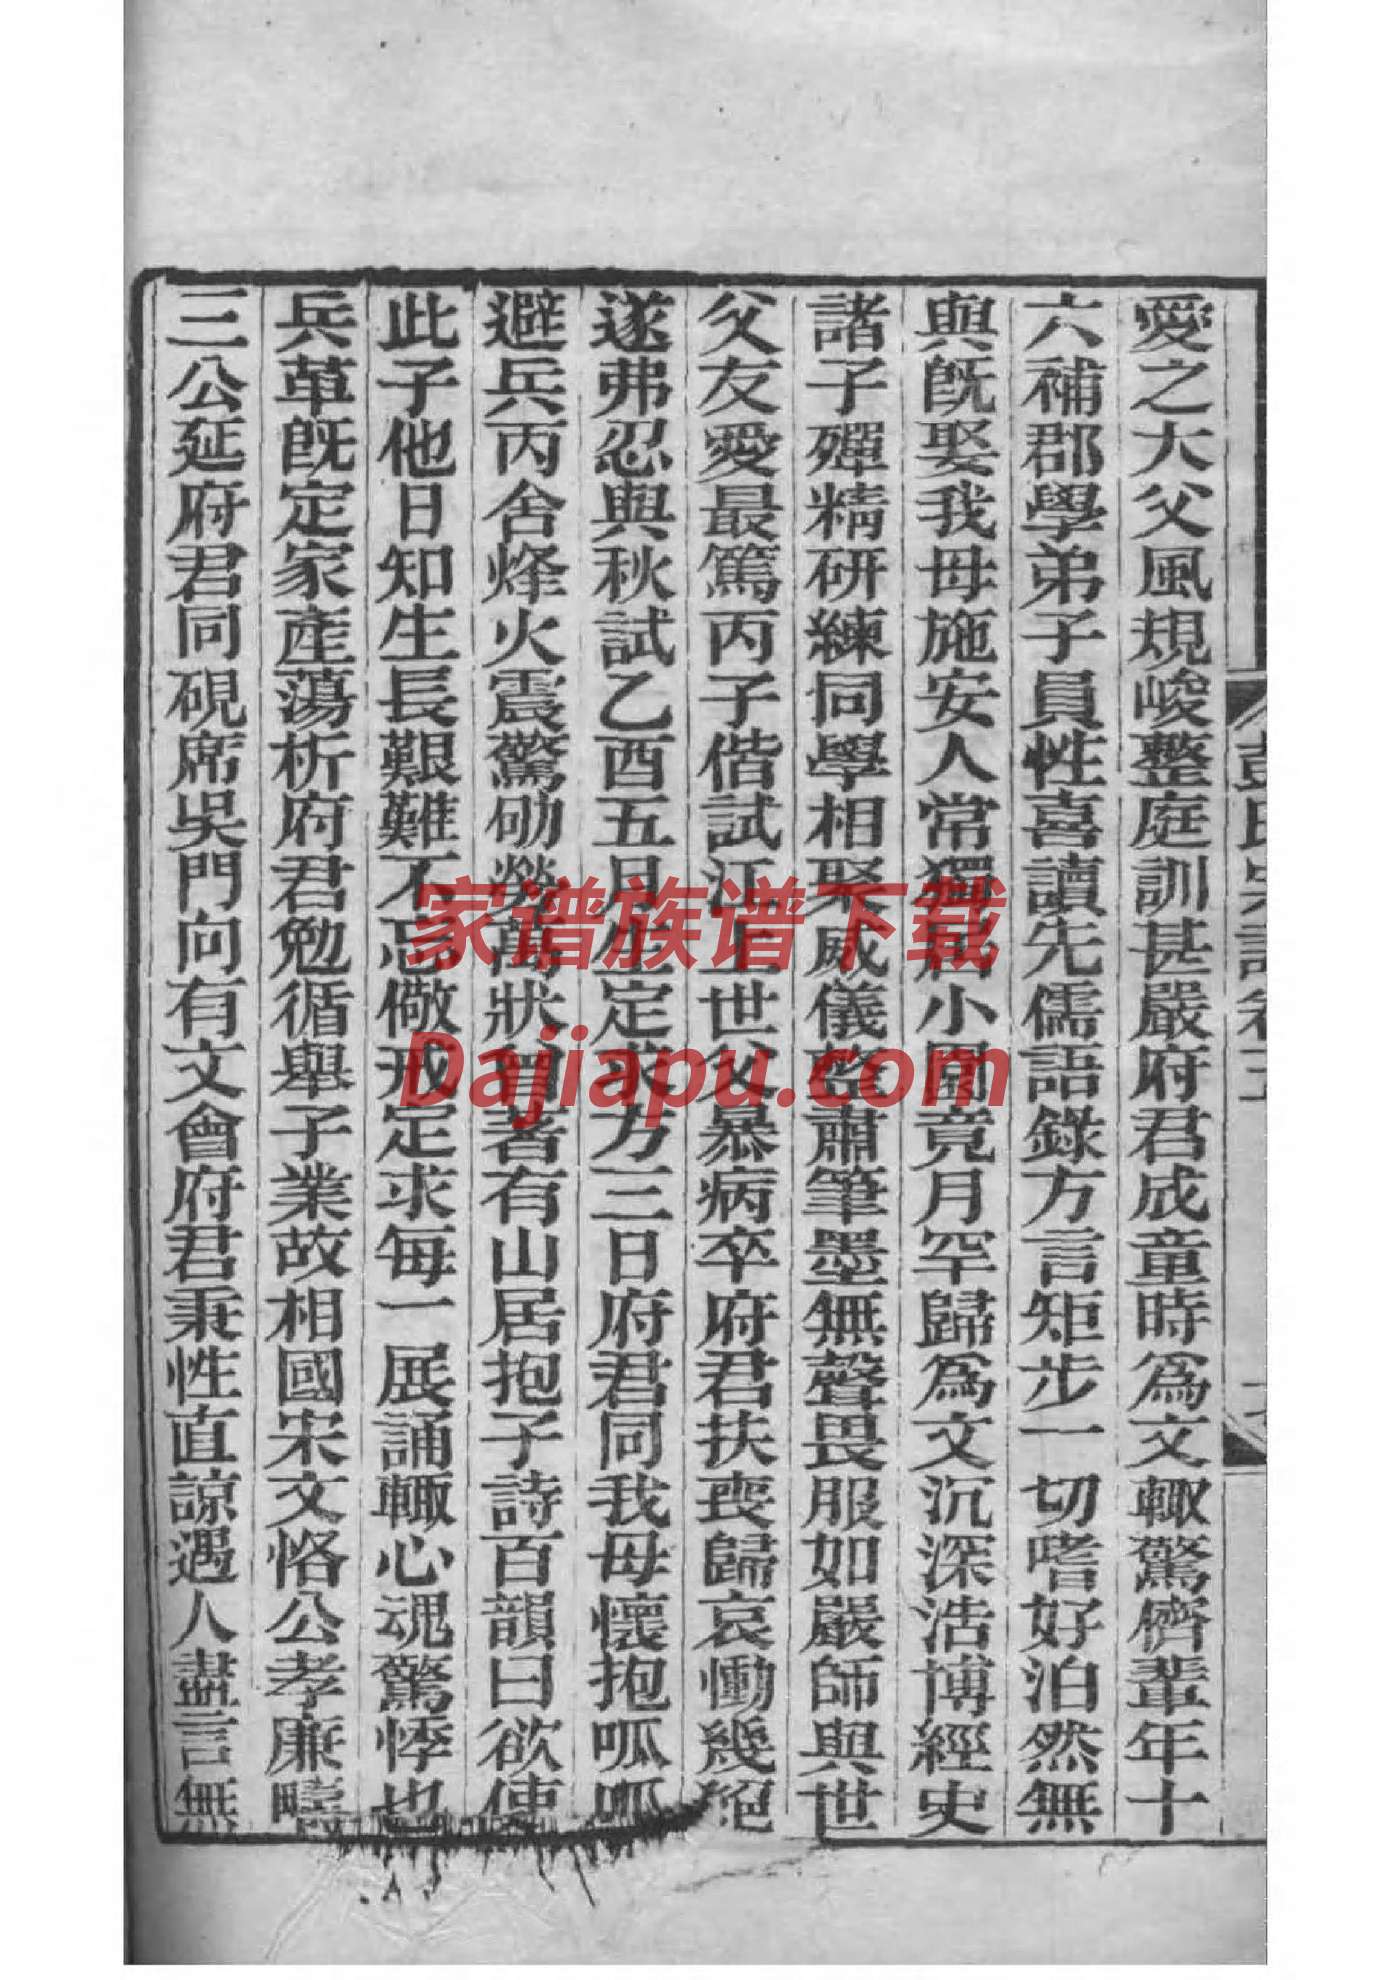 愛之大父風規峻整庭訓甚嚴府君成童時為文輙驚儕輩年十
六補郡學弟子員性喜讀先儒語錄方言矩步一切嗜好泊然無
與既娶我母施安人常獨居小園竟月罕歸為文沉深浩博經史
諸子殫精研練同學相聚威儀整肅筆墨無聲畏服如嚴師與世
父友愛最篤丙子偕試江上世父暴病卒府君扶喪歸哀慟幾絕
遂弗忍與秋試乙酉五月生定求方三日府君同我母懷抱呱呱
避兵丙舍烽火震驚劬勞萬狀曾著有山居抱子詩百韻曰欲使
此子他日知生長艱難不忘儆戒定求每一展誦輙心魂驚悸也
兵革既定家產蕩析府君勉循舉子業故相國宋文恪公孝廉疇
三公延府君同硯席吳門向有文會府君秉性直諒遇人盡言無
彭氏宗譜卷三
家谱族谱下载
Dajiapu.com